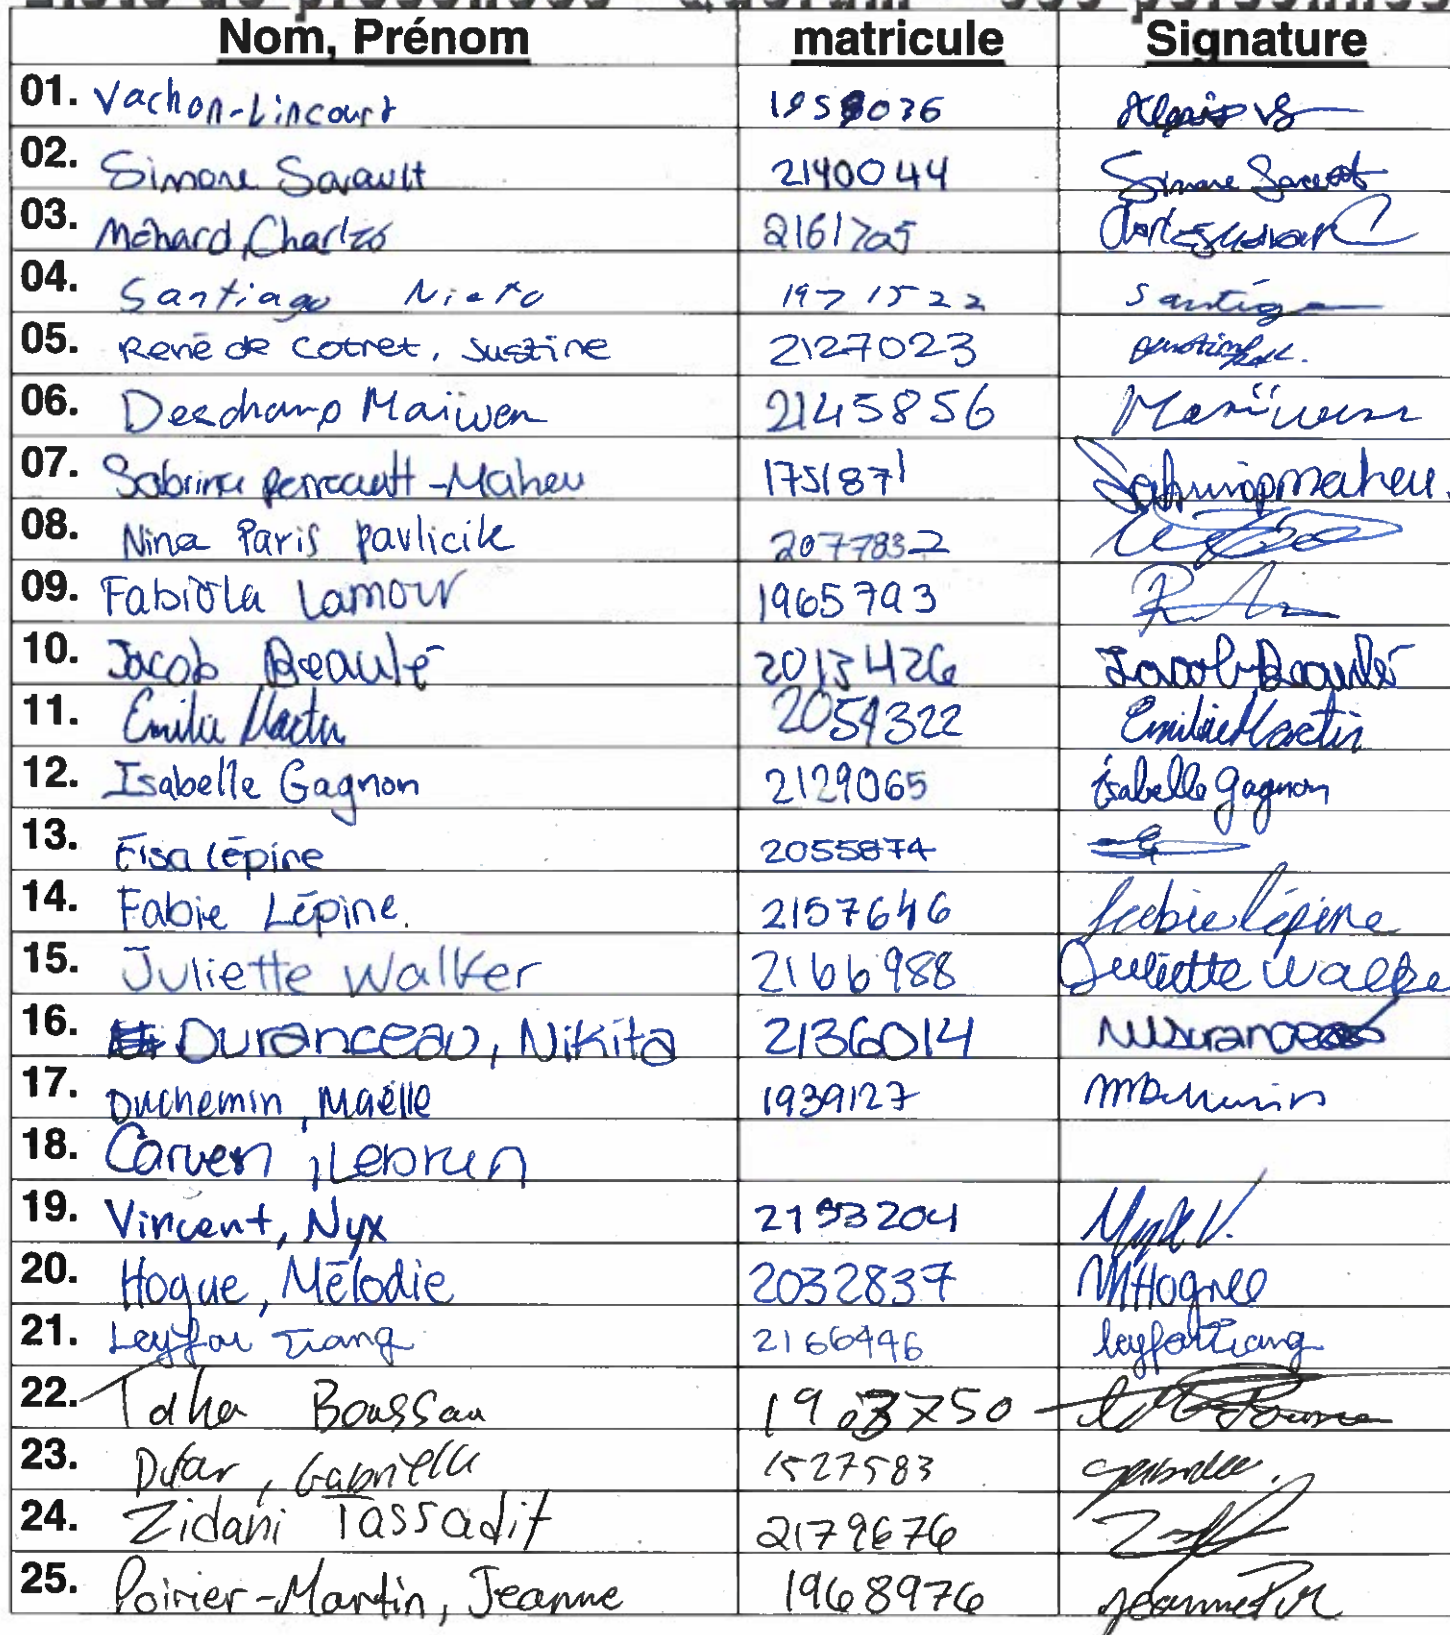 Nom, Prénom matricule Signature
01. Vachon-Lincourt
02. Simone Sarault 2140044 Simone Sarault
03. Ménard, Charles 2161705
04. Santiago Nieto 1971522 Santiago
05. René de Cotret, Justine 2127023
06. Deschamp Maïwen 2145856 Maïwenn
07. Sabrina Perreault-Maheu 1751871 Sabrinapmaheu.
08. Nina Paris Pavlicik 2077832
09. Fabiola Lamour 1965793
10. Jacob Beaulé 2013426 Jacob Beaulé
11. Emilie Martin 2054322 Emilie Martin
12. Isabelle Gagnon 2129065 Isabelle Gagnon
13. Elsa Lépine 2055874
14. Fabie Lépine. 2157646 Fabie Lépine
15. Juliette Walker 2166988 Juliette Walke
16. Duranceau, Nikita 2136014
17. Duchemin, Maëlle 1939127
18. Carven, Lebrun
19. Vincent, Nyx 2193204 Nyx V.
20. Hogue, Mélodie 2032837 MHogue
21. Leyfou Tiang 2166446
22. Taha Boussaa
23. Gabriella 1527583
24. Zidani Tassadit 2179676
25. Poirier-Martin, Jeanne 1968976 JeannePM